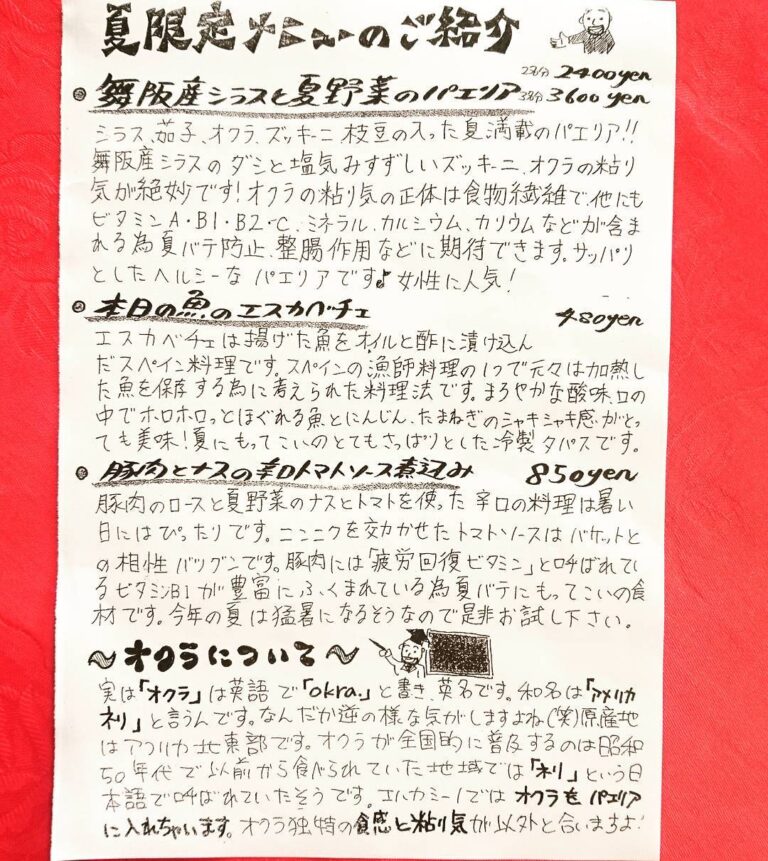 夏限定メニューのご紹介
2名分 2400yen
舞阪産シラスと夏野菜のパエリア 3名分 3600yen
シラス、茄子、オクラ、ズッキーニ枝豆の入った夏満載のパエリア!!
舞阪産シラスのダシと塩気みずずしいズッキーニ、オクラの粘り
気が絶妙です!オクラの粘り気の正体は食物繊維で、他にも
ビタミンA・B1・B2・C、ミネラル、カルシウム、カリウムなどが含ま
れる為夏バテ防止、整腸作用などに期待できます。サッパリ
としたヘルシーなパエリアです♪女性に人気!
本日の魚のエスカベチェ 480yen
エスカベチェは揚げた魚をオイルと酢に漬け込ん
だスペイン料理です。スペインの漁師料理の1つで元々は加熱し
た魚を保存する為に考えられた料理法です。まろやかな酸味、口の
中でホロホロっとほぐれる魚とにんじん、たまねぎのシャキシャキ感がとっ
ても美味!夏にもってこいのとてもさっぱりとした冷製タパスです。
豚肉とナスの辛口トマトソース煮込み 850yen
豚肉のロースと夏野菜のナスとトマトを使った辛口の料理は暑い
日にはぴったりです。ニンニクを効かせたトマトソースはバケットと
の相性バツグンです。豚肉には「疲労回復ビタミン」と呼ばれてい
るビタミンB1が豊富にふくまれている為夏バテにもってこいの食
材です。今年の夏は猛暑になるそうなので是非お試し下さい。
～オクラについて～
実は「オクラ」は英語で「okra.」と書き、英名です。和名は「アメリカ
ネリ」と言うんです。なんだか逆の様な気がしますよね(笑)原産地
はアフリカ北東部です。オクラが全国的に普及するのは昭和
50年代で以前から食べられていた地域では「ネリ」という日
本語で呼ばれていたそうです。エルカミーノではオクラをパエリア
に入れちゃいます。オクラ独特の食感と粘り気が以外と合いますよ!